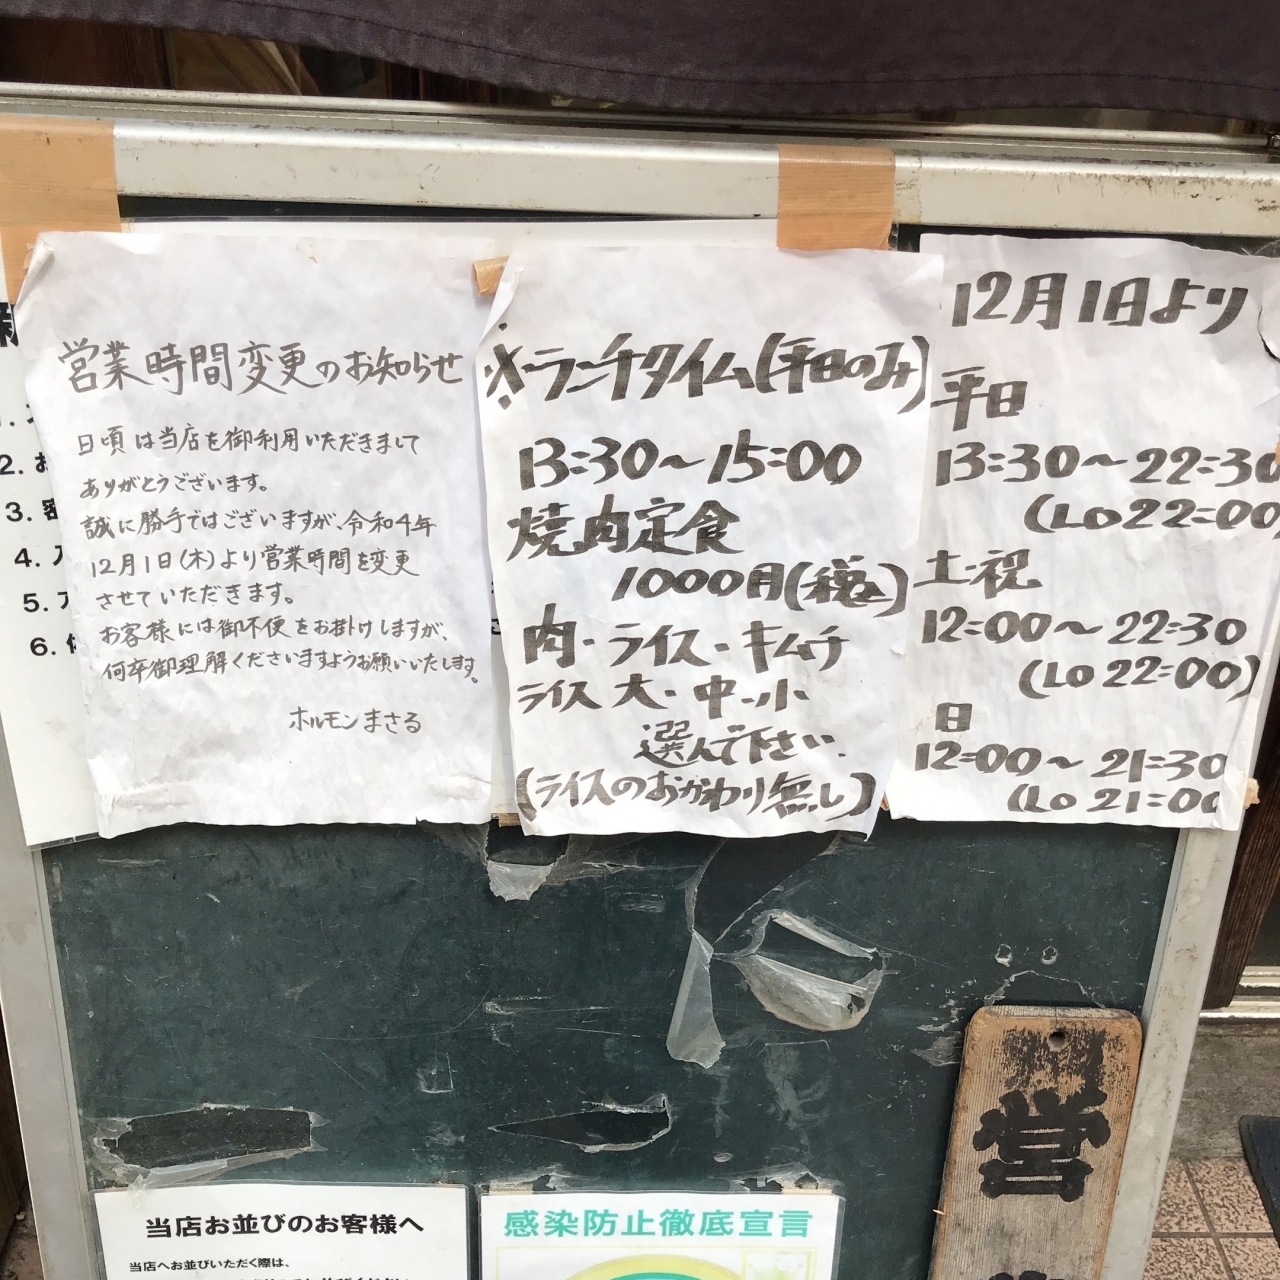 営業時間変更のお知らせ
日頃は当店を御利用いただきまして
ありがとうございます。
誠に勝手ではございますが、令和4年
12月1日(木)より営業時間を変更
させていただきます。
お客様には御不便をお掛けしますが、
何卒御理解くださいますようお願いいたします。
ホルモンまさる
※ランチタイム(平日のみ)
13:30〜15:00
焼肉定食
1000円(税込)
肉・ライス・キムチ
ライス 大・中・小
選んで下さい.
(ライスのおかわり無し)
12月1日より
平日
13:30〜22:30
(Lo 22:00)
土・祝
12:00〜22:30
(Lo 22:00)
日
12:00〜21:30
(Lo 21:00
2. お
3.
4. 入
5.
6.
営
当店お並びのお客様へ
当店へお並びいただく際は、
感染防止徹底宣言